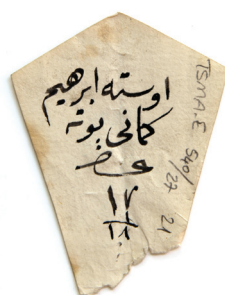 اوسته ابرهيم
كمانى بوته
١٧
TSMA.E 540/27 21